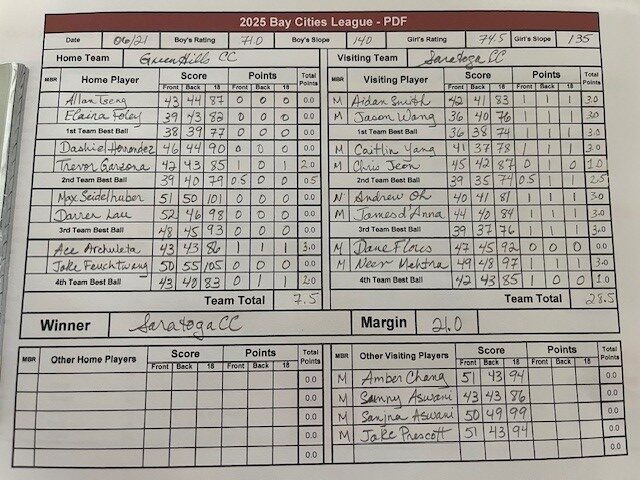 2025 Bay Cities League - PDF
Date 06/21 Boy's Rating 71.0 Boy's Slope 140 Girl's Rating 74.5 Girl's Slope 135
Home Team Green Hills CC Visiting Team Saratoga CC
MBR Home Player Score Points Total Points MBR Visiting Player Score Points Total Points
Front Back 18 Front Back 18 Front Back 18 Front Back 18
Allan Tseng 43 44 87 0 0 0 0.0 M Aidan Smith 42 41 83 1 1 1 3.0
Elaina Foley 39 43 82 0 0 0 0.0 M Jason Wang 36 40 76 1 1 1 3.0
1st Team Best Ball 38 39 77 0 0 0 0.0 1st Team Best Ball 36 38 74 1 1 1 3.0
Dashiel Hernandez 46 44 90 0 0 0 0.0 M Caitlin Yang 41 37 78 1 1 1 3.0
Trevor Garzona 42 43 85 1 0 1 2.0 M Chris Jeon 45 42 87 0 1 0 1.0
2nd Team Best Ball 39 40 79 0.5 0 0 0.5 2nd Team Best Ball 39 35 74 0.5 1 1 2.5
Max Seidelhuber 51 50 101 0 0 0 0.0 Andrew Oh 40 41 81 1 1 1 3.0
Darren Lau 52 46 98 0 0 0 0.0 M James d'Anna 44 40 84 1 1 1 3.0
3rd Team Best Ball 48 45 93 0 0 0 0.0 3rd Team Best Ball 39 37 76 1 1 1 3.0
Ace Archuleta 43 43 86 1 1 1 3.0 M Dane Flores 47 45 92 0 0 0 0.0
Jake Feuchtwang 50 55 105 0 0 0 0.0 M Neer Mehtra 49 48 97 1 1 1 3.0
4th Team Best Ball 43 40 83 0 1 1 2.0 4th Team Best Ball 42 43 85 1 0 0 1.0
Team Total 7.5 Team Total 28.5
Winner Saratoga CC Margin 21.0
MBR Other Home Players Score Points Total Points MBR Other Visiting Players Score Points Total Points
Front Back 18 Front Back 18 Front Back 18 Front Back 18
0.0 M Amber Chang 51 43 94 0.0
0.0 M Sammy Aswani 43 43 86 0.0
0.0 M Sanjna Aswani 50 49 99 0.0
0.0 M Jake Prescott 51 43 94 0.0
0.0 0.0